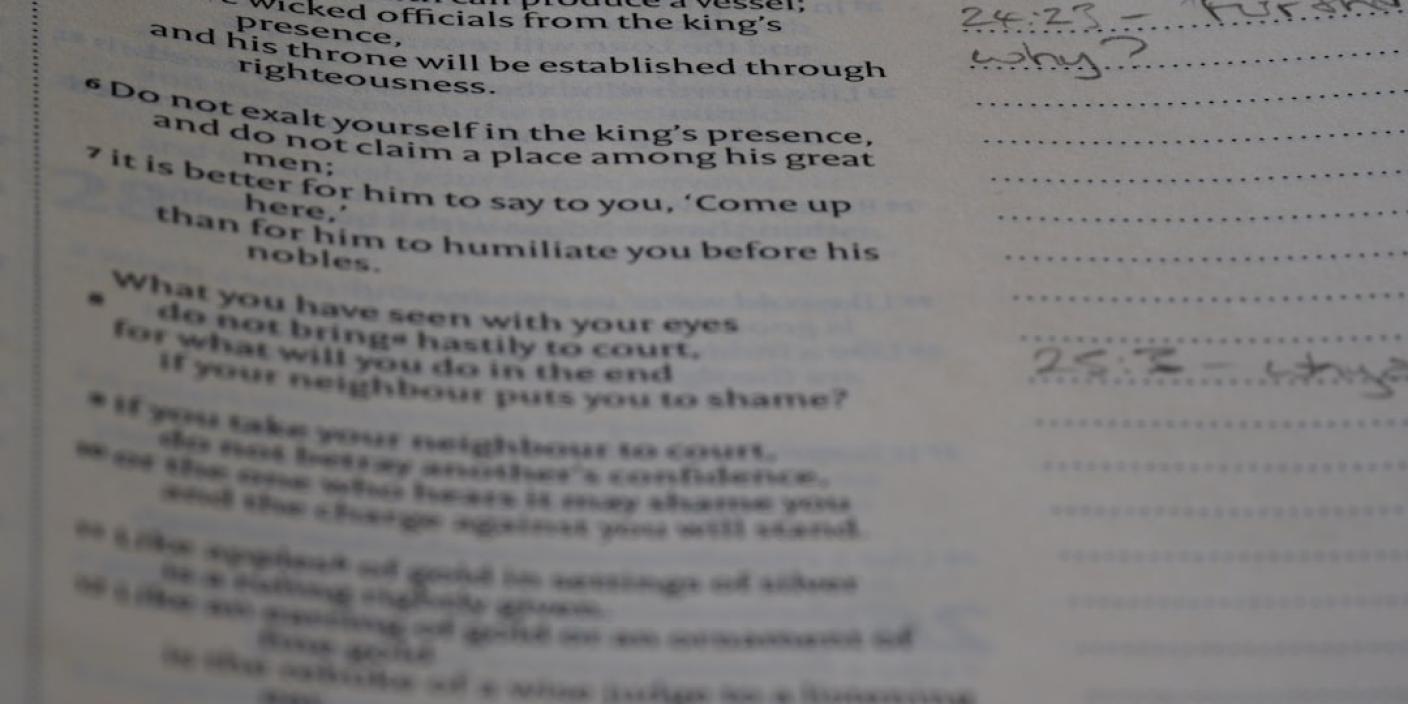 can produce a vessel;
wicked officials from the king's
presence,
and his throne will be established through
righteousness.
6 Do not exalt yourself in the king's presence,
and do not claim a place among his great
men;
7 it is better for him to say to you, 'Come up
here,'
than for him to humiliate you before his
nobles.
What you have seen with your eyes
8 do not bring a hastily to court,
for what will you do in the end
if your neighbour puts you to shame?
9 If you take your neighbour to court,
do not betray another's confidence,
10 or the one who hears it may shame you
and the charge against you will stand.
11 Like apples of gold in settings of silver
is a ruling rightly given.
12 Like an earring of gold or an ornament of
fine gold
is the rebuke of a wise judge to a listening
24:23 -
why?
25:2 - why?